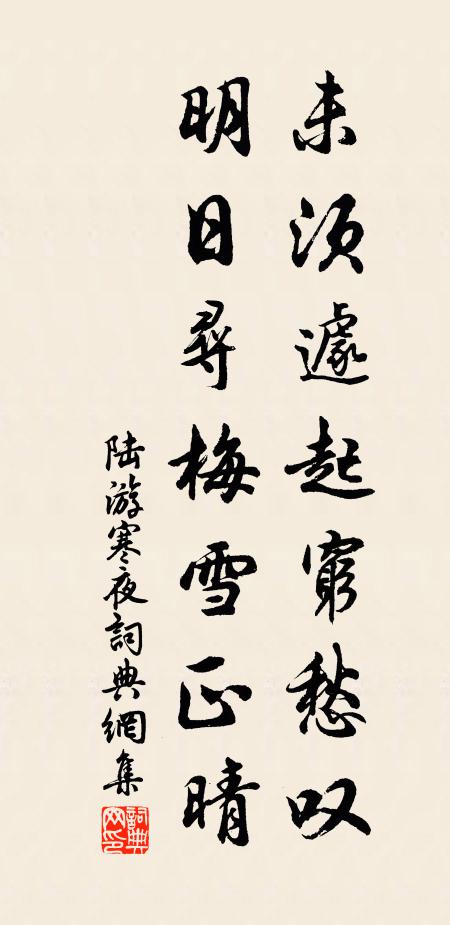 未须遽起穷愁叹
明日尋梅雪正晴
陆游寒夜詞典網集
詞典網印